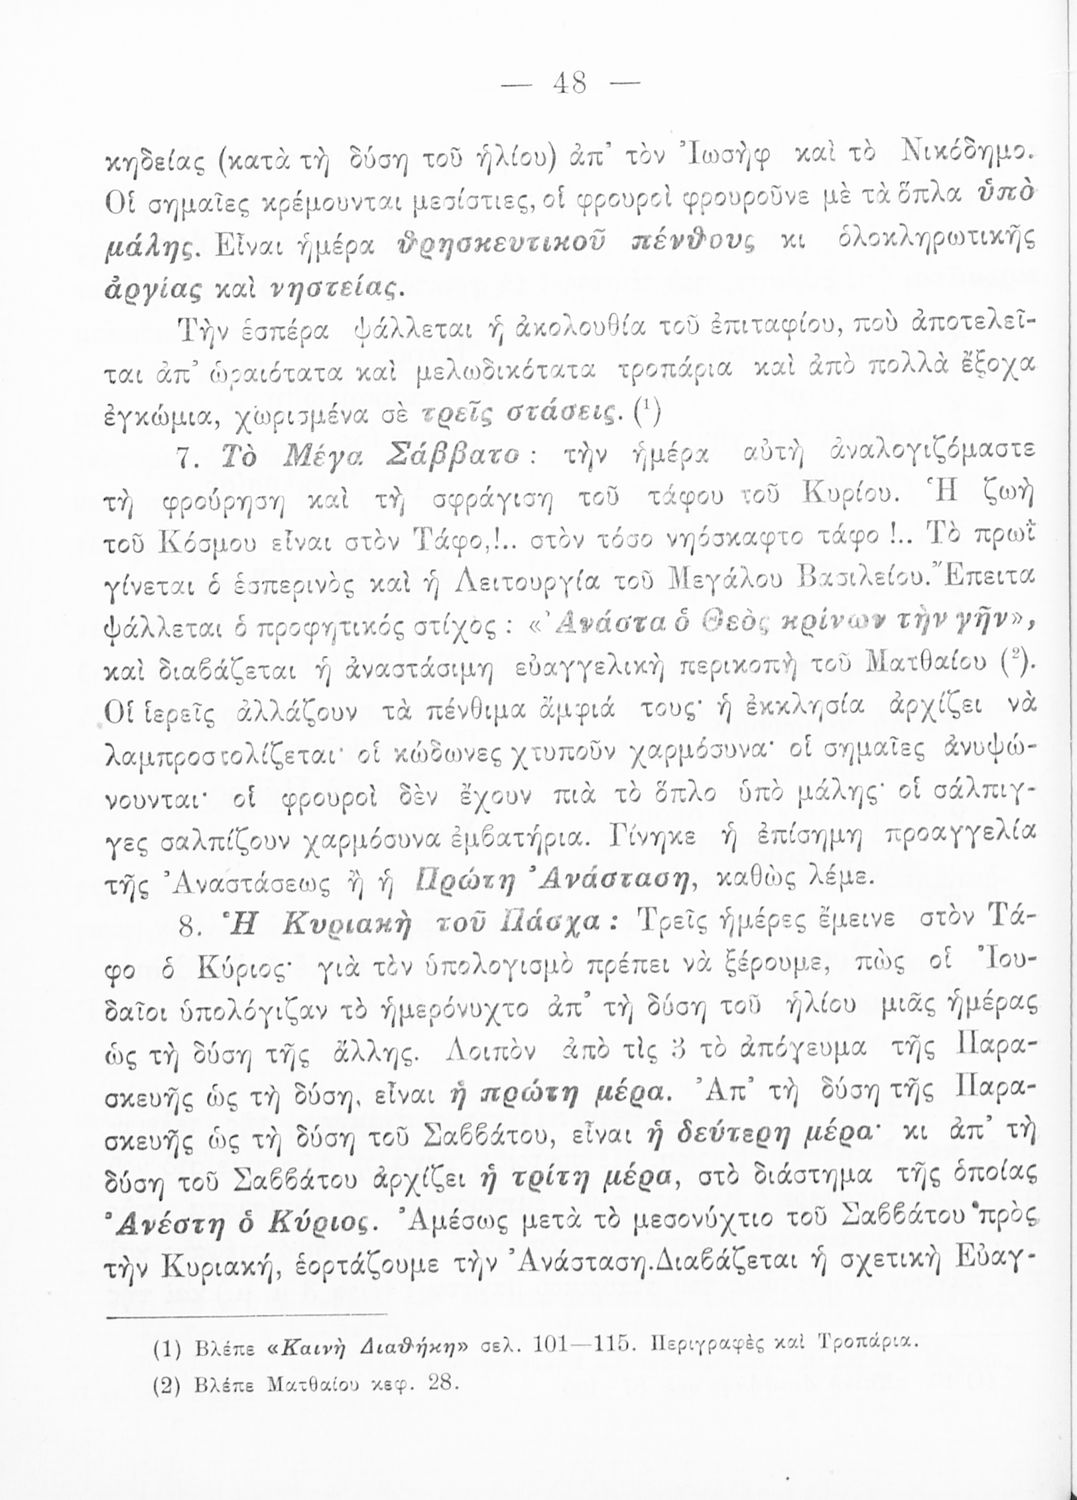 — 48 —
κηδείας (κατὰ τὴ δύση τοῦ ἡλίου) ἀπ’ τὸν Ἰωσὴφ καὶ τὸ Νικόδημο.
Οἱ σημαῖες κρέμουνται μεσίστιες, οἱ φρουροὶ φρουροῦνε μὲ τὰ ὅπλα ὑπὸ
μάλης. Εἶναι ἡμέρα θρησκευτικοῦ πένθους κι ὁλοκληρωτικῆς
ἀργίας καὶ νηστείας.
Τὴν ἑσπέρα ψάλλεται ἡ ἀκολουθία τοῦ ἐπιταφίου, ποὺ ἀποτελεῖ-
ται ἀπ’ ὡραιότατα καὶ μελωδικότατα τροπάρια καὶ ἀπὸ πολλὰ ἔξοχα
ἐγκώμια, χωρισμένα σὲ τρεῖς στάσεις. (¹)
7. Τὸ Μέγα Σάββατο : τὴν ἡμέρα αὐτὴ ἀναλογιζόμαστε
τὴ φρούρηση καὶ τὴ σφράγιση τοῦ τάφου τοῦ Κυρίου. Ἡ ζωὴ
τοῦ Κόσμου εἶναι στὸν Τάφο,!.. στὸν τόσο νηόσκαφτο τάφο !.. Τὸ πρωῒ
γίνεται ὁ ἑσπερινὸς καὶ ἡ Λειτουργία τοῦ Μεγάλου Βασιλείου. Ἔπειτα
ψάλλεται ὁ προφητικός στίχος : «Ἀνάστα ὁ Θεὸς κρίνων τὴν γῆν»,
καὶ διαβάζεται ἡ ἀναστάσιμη εὐαγγελικὴ περικοπὴ τοῦ Ματθαίου (²).
Οἱ ἱερεῖς ἀλλάζουν τὰ πένθιμα ἄμφιά τους· ἡ ἐκκλησία ἀρχίζει νὰ
λαμπροστολίζεται· οἱ κώδωνες χτυποῦν χαρμόσυνα· οἱ σημαῖες ἀνυψώ-
νουνται· οἱ φρουροὶ δὲν ἔχουν πιὰ τὸ ὅπλο ὑπὸ μάλης· οἱ σάλπιγ-
γες σαλπίζουν χαρμόσυνα ἐμβατήρια. Γίνηκε ἡ ἐπίσημη προαγγελία
τῆς Ἀναστάσεως ἢ ἡ Πρώτη Ἀνάσταση, καθὼς λέμε.
8. Ἡ Κυριακὴ τοῦ Πάσχα : Τρεῖς ἡμέρες ἔμεινε στὸν Τά-
φο ὁ Κύριος· γιὰ τὸν ὑπολογισμὸ πρέπει νὰ ξέρουμε, πὼς οἱ Ἰου-
δαῖοι ὑπολόγιζαν τὸ ἡμερόνυχτο ἀπ’ τὴ δύση τοῦ ἡλίου μιᾶς ἡμέρας
ὡς τὴ δύση τῆς ἄλλης. Λοιπὸν ἀπὸ τὶς 3 τὸ ἀπόγευμα τῆς Παρα-
σκευῆς ὡς τὴ δύση, εἶναι ἡ πρώτη μέρα. Ἀπ’ τὴ δύση τῆς Παρα-
σκευῆς ὡς τὴ δύση τοῦ Σαββάτου, εἶναι ἡ δεύτερη μέρα· κι ἀπ’ τὴ
δύση τοῦ Σαββάτου ἀρχίζει ἡ τρίτη μέρα, στὸ διάστημα τῆς ὁποίας
Ἀνέστη ὁ Κύριος. Ἀμέσως μετὰ τὸ μεσονύχτιο τοῦ Σαββάτου πρὸς
τὴν Κυριακή, ἑορτάζουμε τὴν Ἀνάσταση. Διαβάζεται ἡ σχετικὴ Εὐαγ-
(1) Βλέπε «Καινὴ Διαθήκη» σελ. 101—115. Περιγραφὲς καὶ Τροπάρια.
(2) Βλέπε Ματθαίου κεφ. 28.